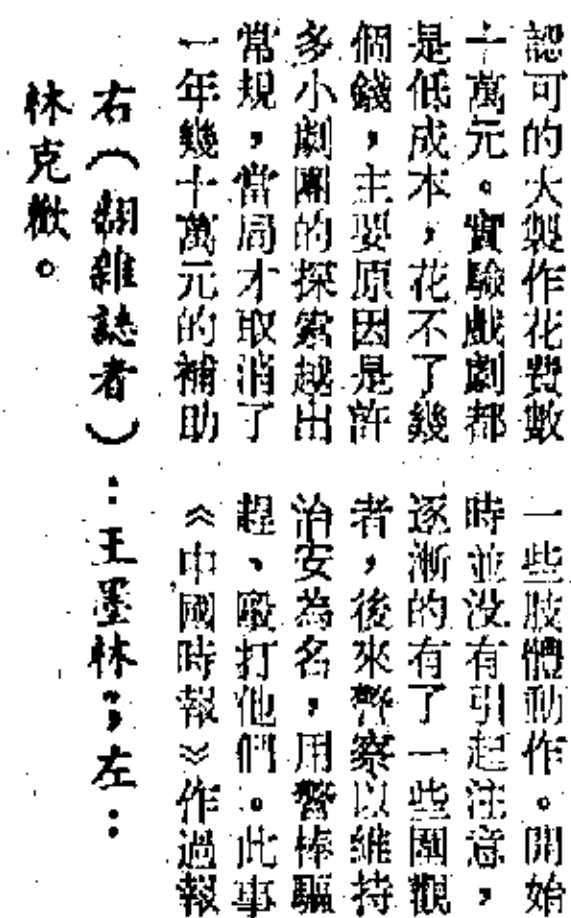 認可的大製作花費數
十萬元。實驗戲劇都
是低成本，花不了幾
個錢，主要原因是許
多小劇團的探索越出
常規，當局才取消了
一年幾十萬元的補助
一些肢體動作。開始
時並没有引起注意，
逐漸的有了一些圍觀
者，後來警察以維持
治安為名，用警棒驅
趕、毆打他們。此事
《中國時報》作過報
右（翻雜誌者）：王墨林；左：
林克歡。